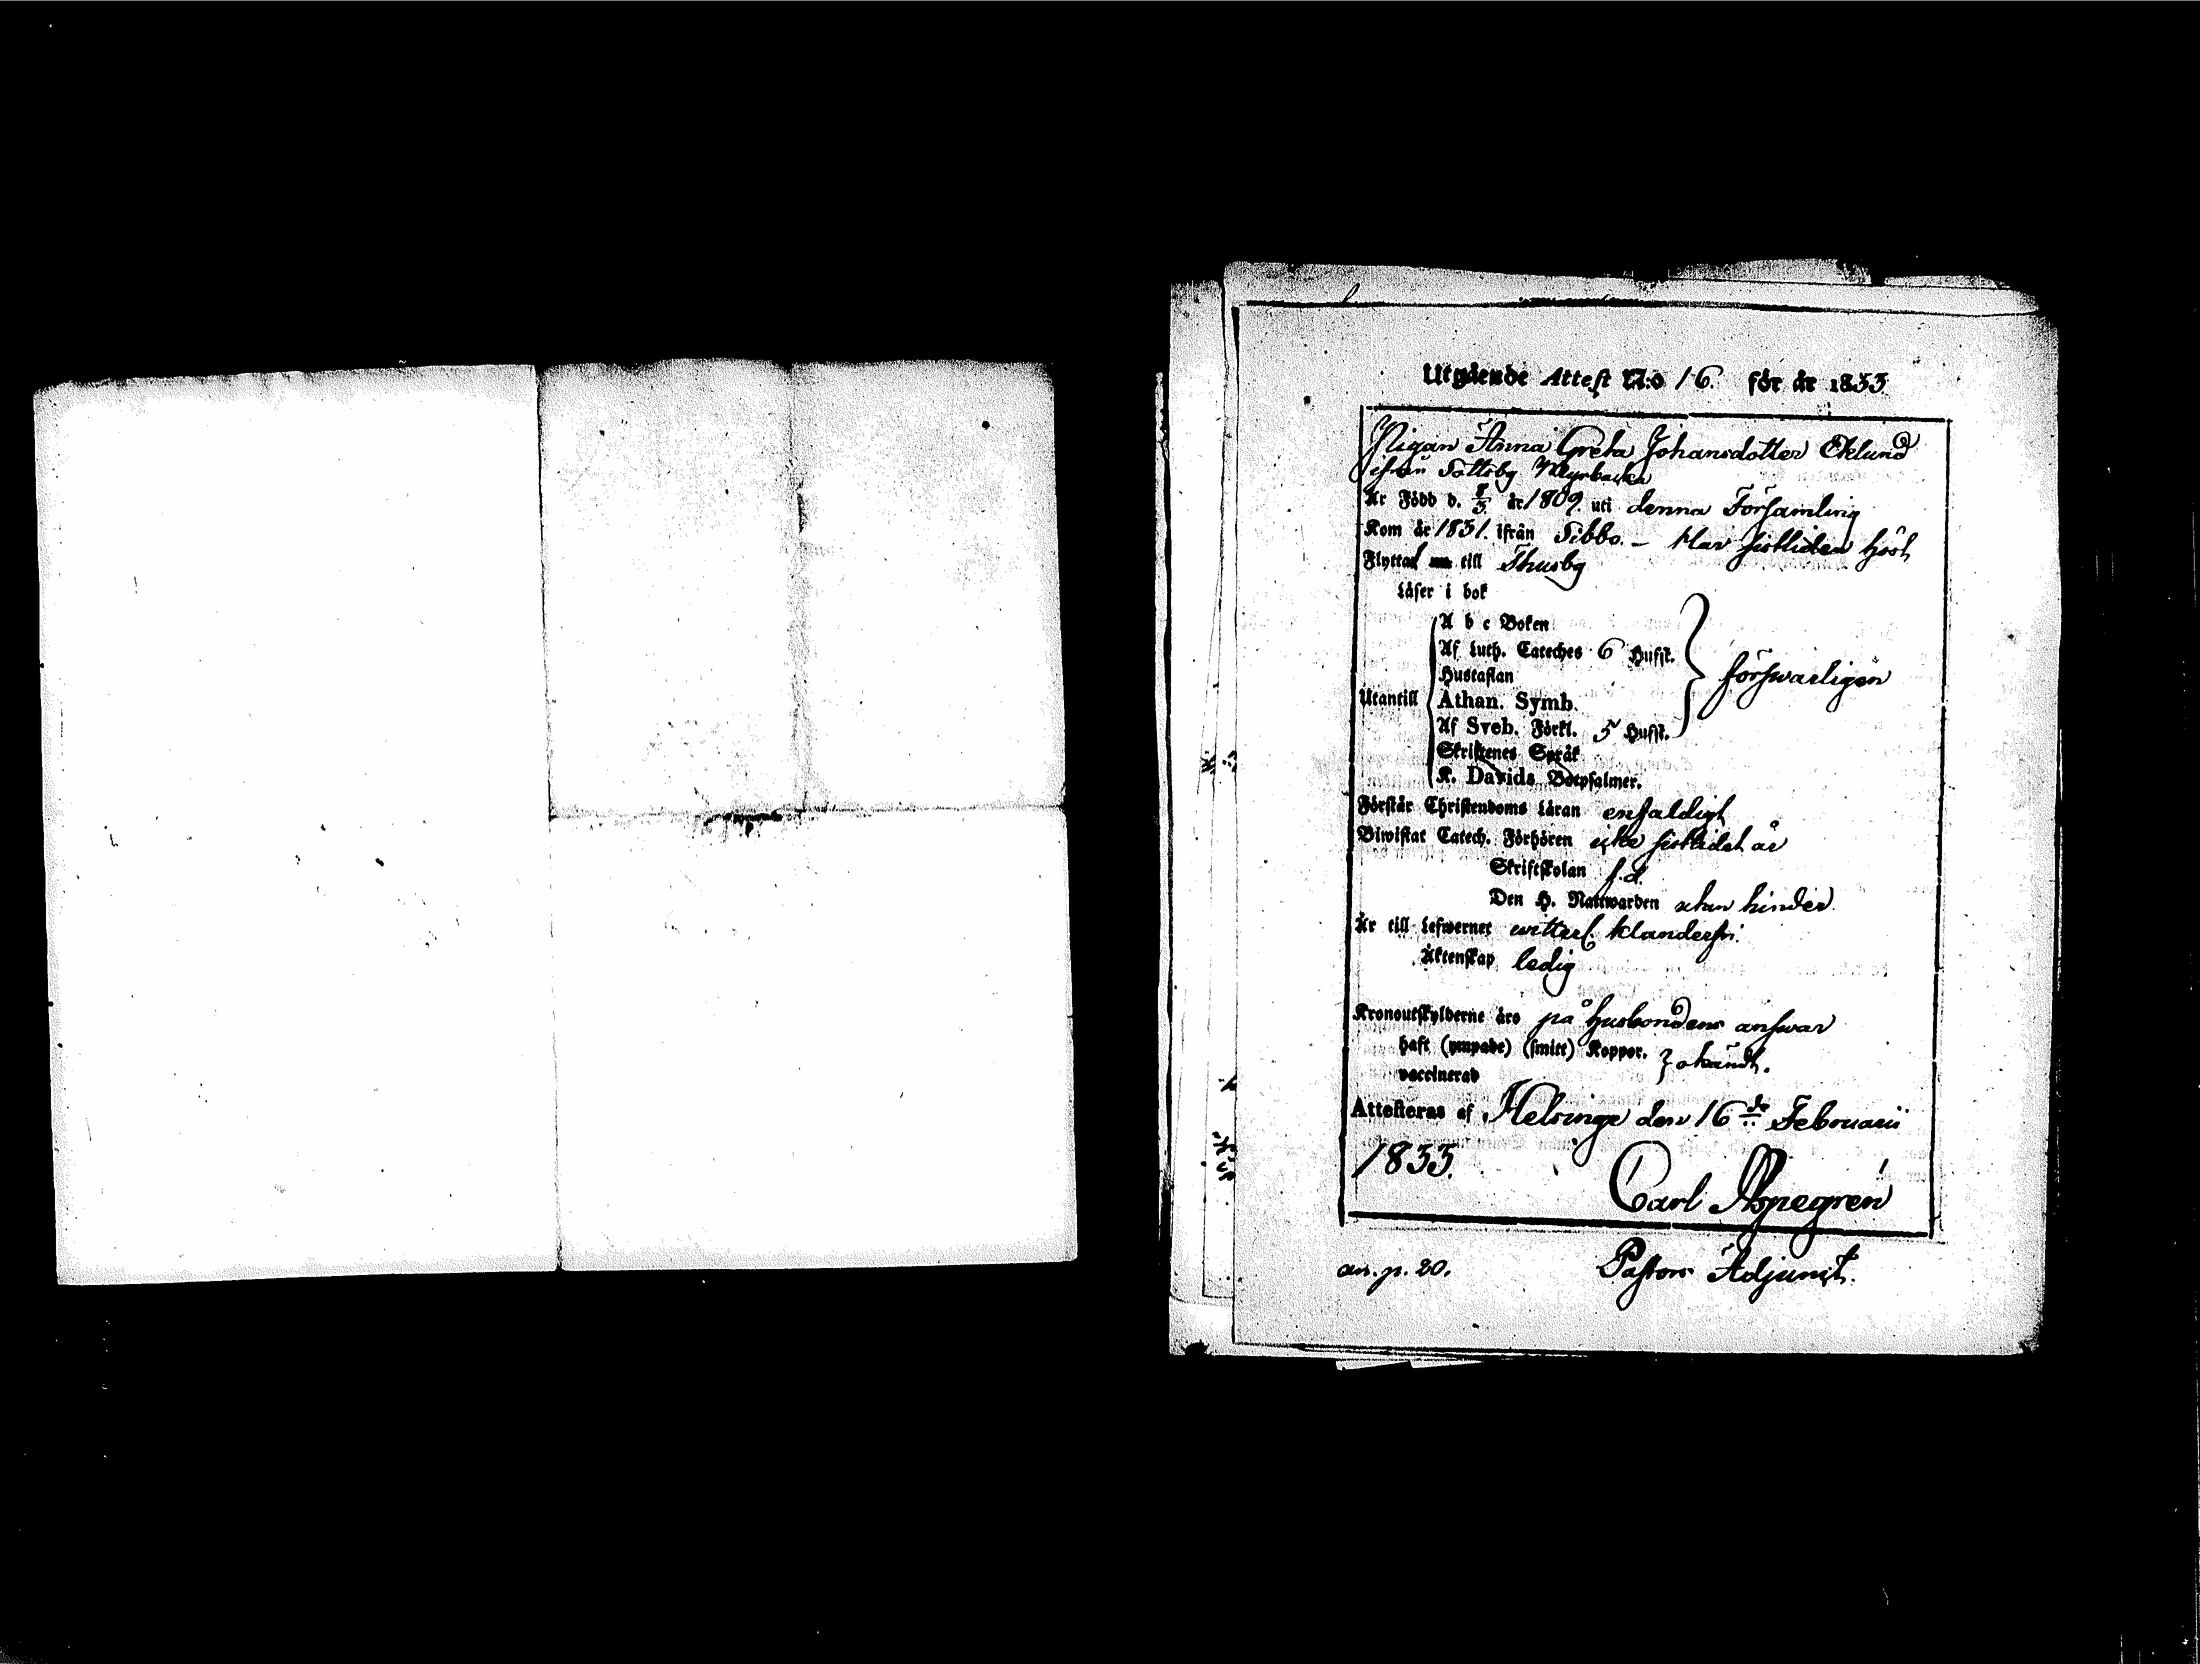 Utgående Attest N:o 16. för år 1833
Pigan Anna Greta Johansdotter Eklund
ifrån Tolkby
Är Född d. 8/3 år 1809. uti denna Församling
Kom år 1831. ifrån Sibbo. — sistliden höst
Flyttad till Thusby
Läser i bok
A b c Boken
Af Luth. Cateches 6 Hufst.
Hustaflan
försvarligen
Utantill Athan. Symb.
Af Sveb. Förkl. 5 Hufst.
Skriftenes Språk
K. Davids Botpsalmer.
Förstår Christendoms Läran enfaldigt
Biwistat Catech. Förhören icke sistlidet år
Skriftskolan f.d.
Den H. Nattwarden utan hinder.
Är till Lefwernet witterl. klanderfri.
Äktenskap ledig
Kronoutskylderne äro på husbondens answar
haft (ympade) (smitt) Koppor. okändt.
vaccinerad
Attesteras af Helsinge den 16de Februarii
1833.
Carl Aspegren
Pastors Adjunct.
an. p. 20.